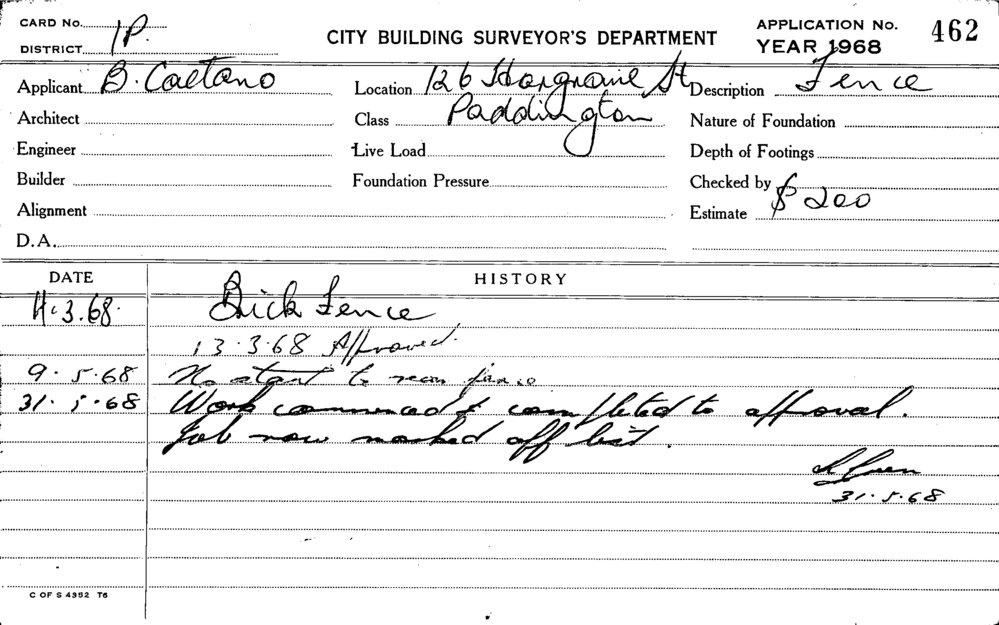 CARD No. 1P.
DISTRICT
CITY BUILDING SURVEYOR'S DEPARTMENT
APPLICATION No. 462
YEAR 1968
Applicant B. Caetano
Location 126 Hargrave St
Paddington
Description Fence
Architect
Class
Nature of Foundation
Engineer
Live Load
Depth of Footings
Builder
Foundation Pressure
Checked by
Alignment
Estimate $ 200
D.A.
DATE HISTORY
11.3.68. Brick Fence
13.3.68 Approved.
9.5.68 No start to new fence
31.5.68 Work commenced & completed to approval.
Job now marked off list.
31.5.68
C OF S 4352 T6